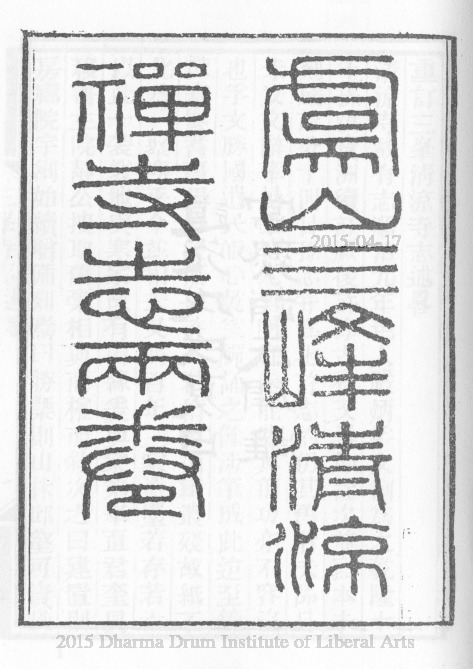 虞山三峰清涼
禪寺志兩卷
2015-04-17
2015 Dharma Drum Institute of Liberal Arts